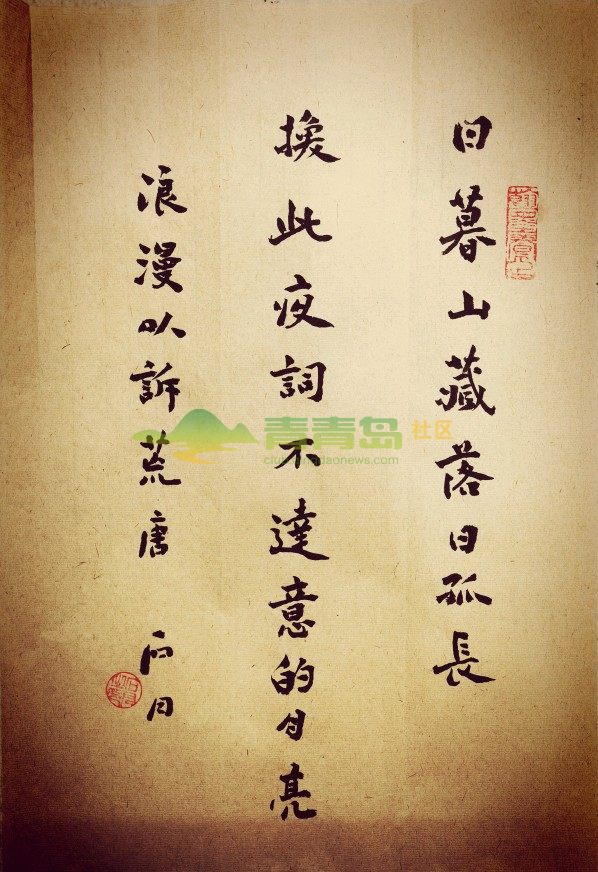 日暮山藏落日孤長
換此夜詞不達意的月亮
浪漫以訴荒唐
青青岛社区
club.qingdaonews.com